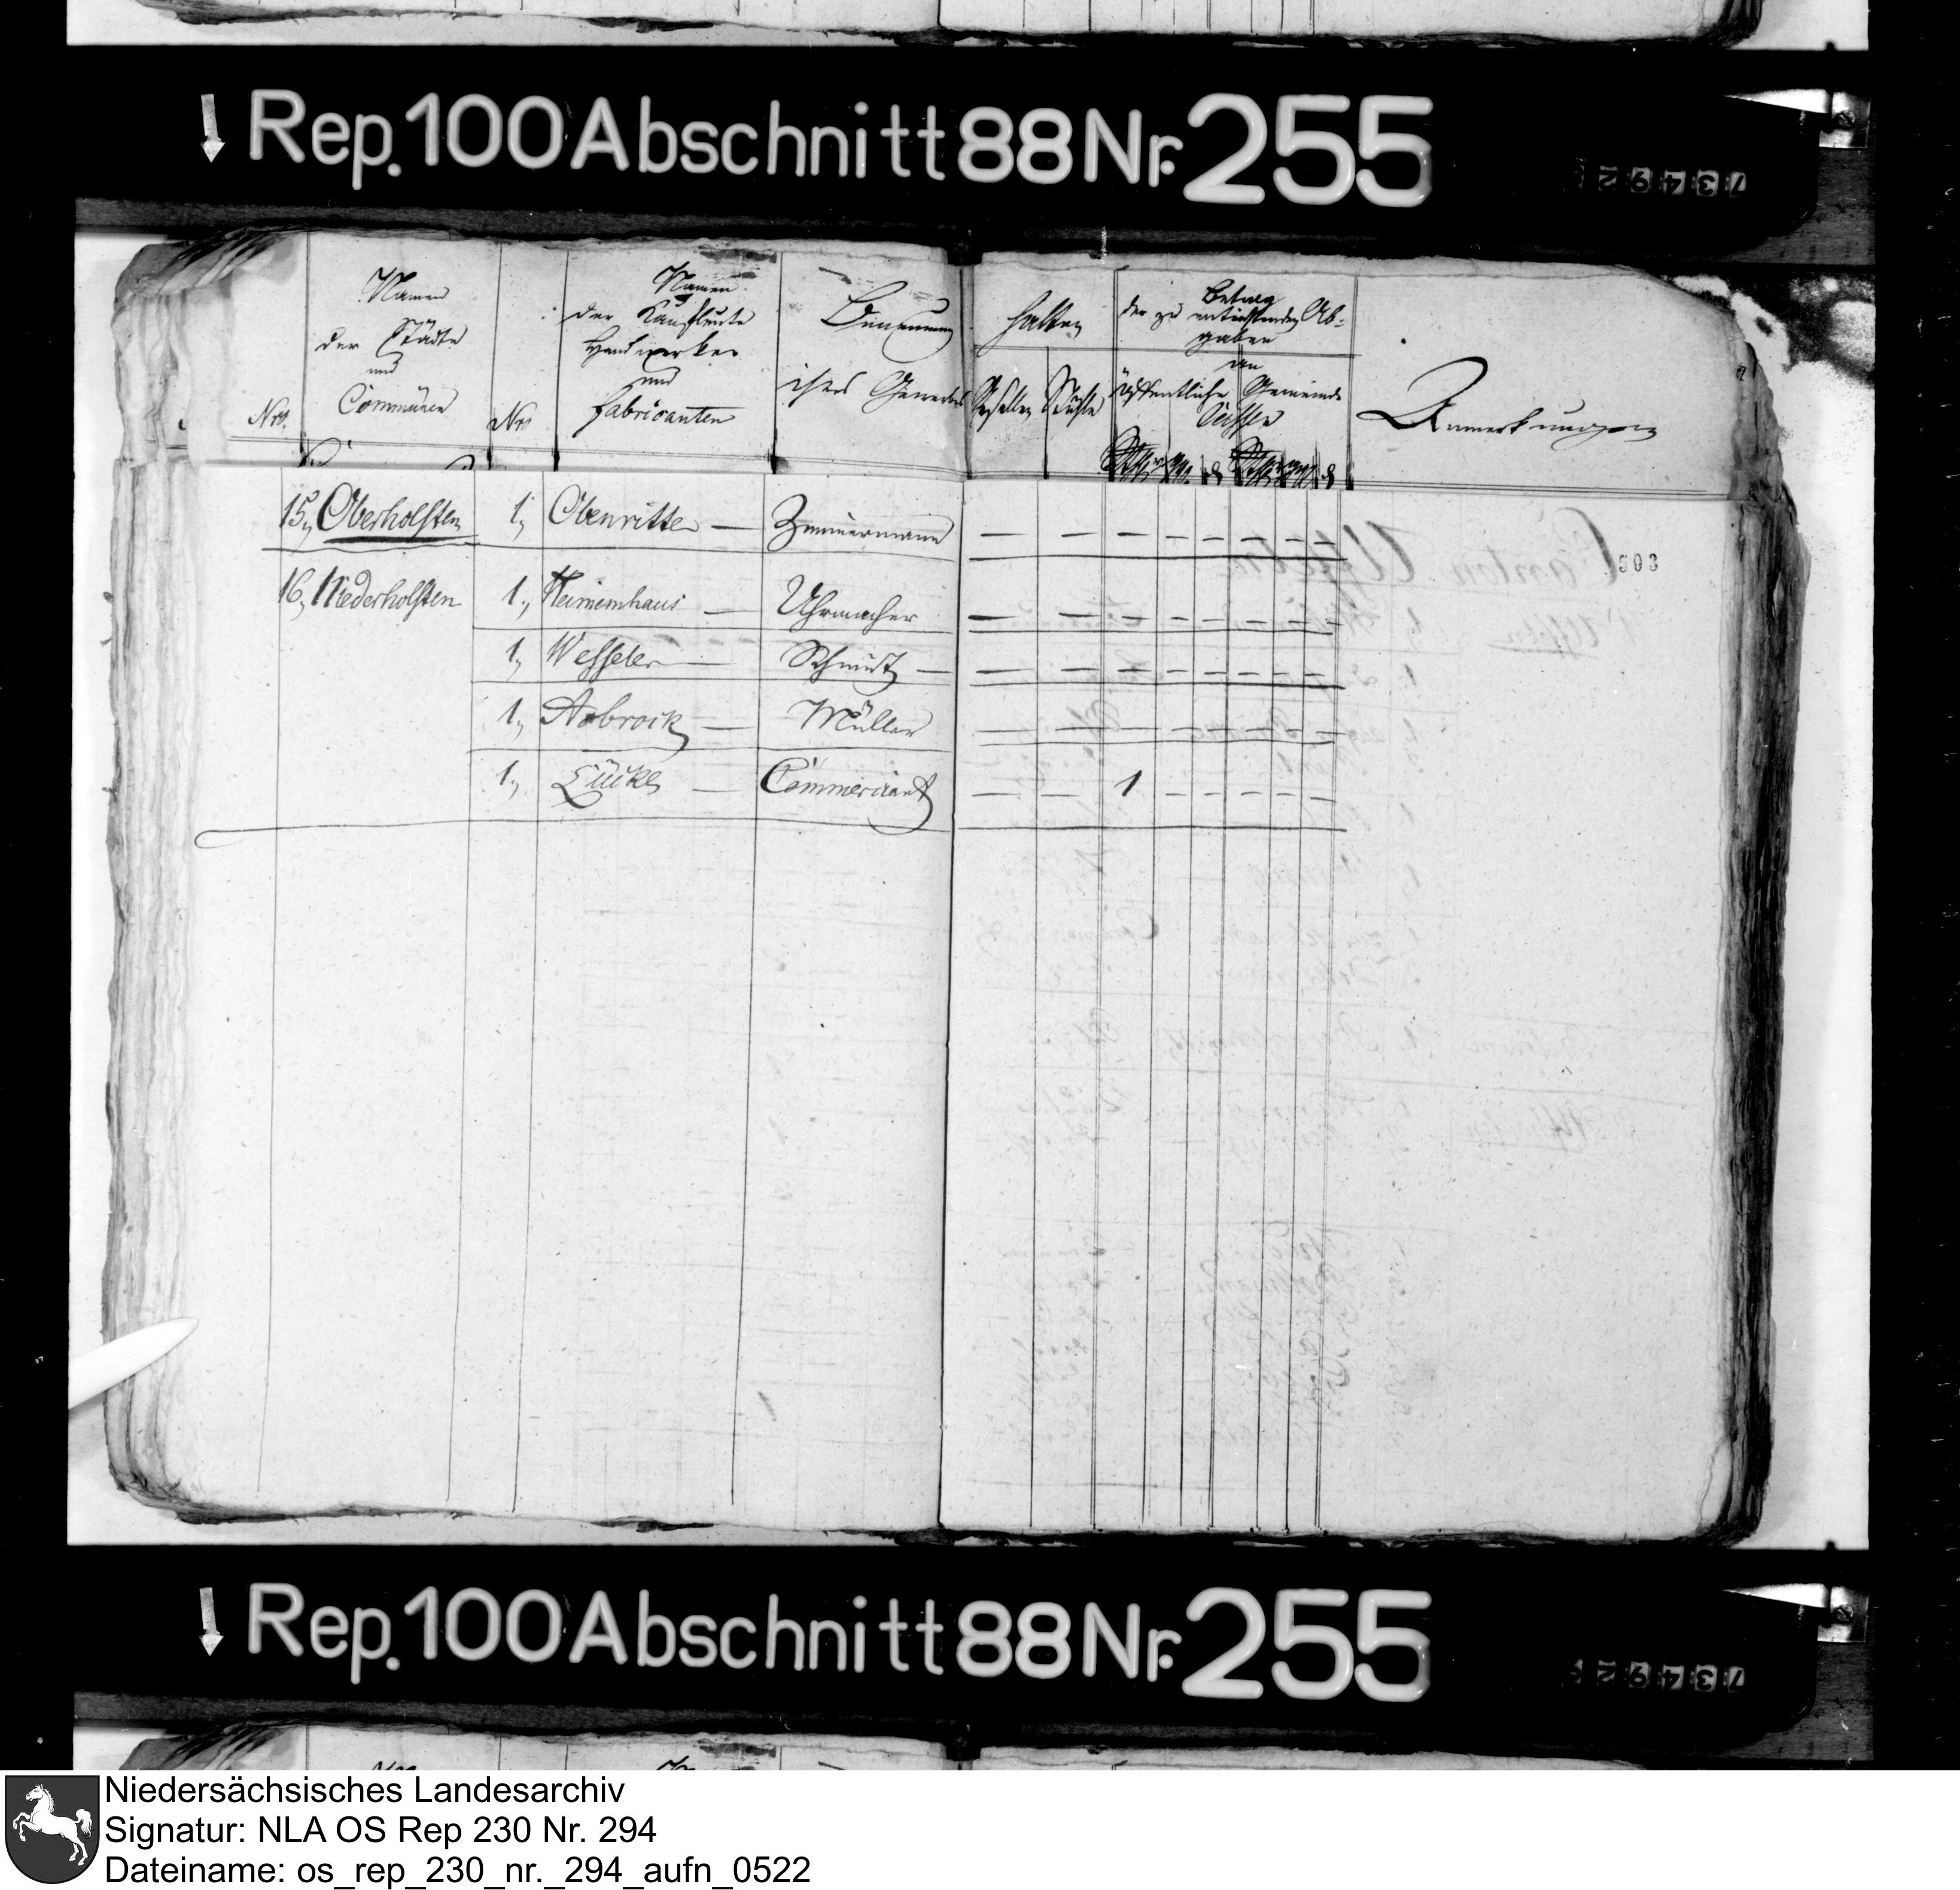 Rep. 100 Abschnitt 88 Nr. 255
Nro.
Namen
der Städte
und
Communen
Nro
Namen
der Kaufleute
Handwerker
und
Fabricanten
Benennung
ihres Gewerbes
halten
Gesellen
Stühle
Betrag
der zu entrichtenden Ab-
gaben
an
öffentliche Gemeinde
Cassen
Anmerkungen
15, Oberholsten 1, Obenritter — Zimmermann — — — — — — — —
303
16, Niederholsten 1, Heimemhaus — Uhrmacher — — — — — — — —
1, Wesseler — Schmidt — — — — — — — — —
1, Aabrock — Müller — — — — — — — —
1, Lücke — Commerciant — — 1 — — — — —
Rep. 100 Abschnitt 88 Nr. 255
Niedersächsisches Landesarchiv
Signatur: NLA OS Rep 230 Nr. 294
Dateiname: os_rep_230_nr._294_aufn_0522